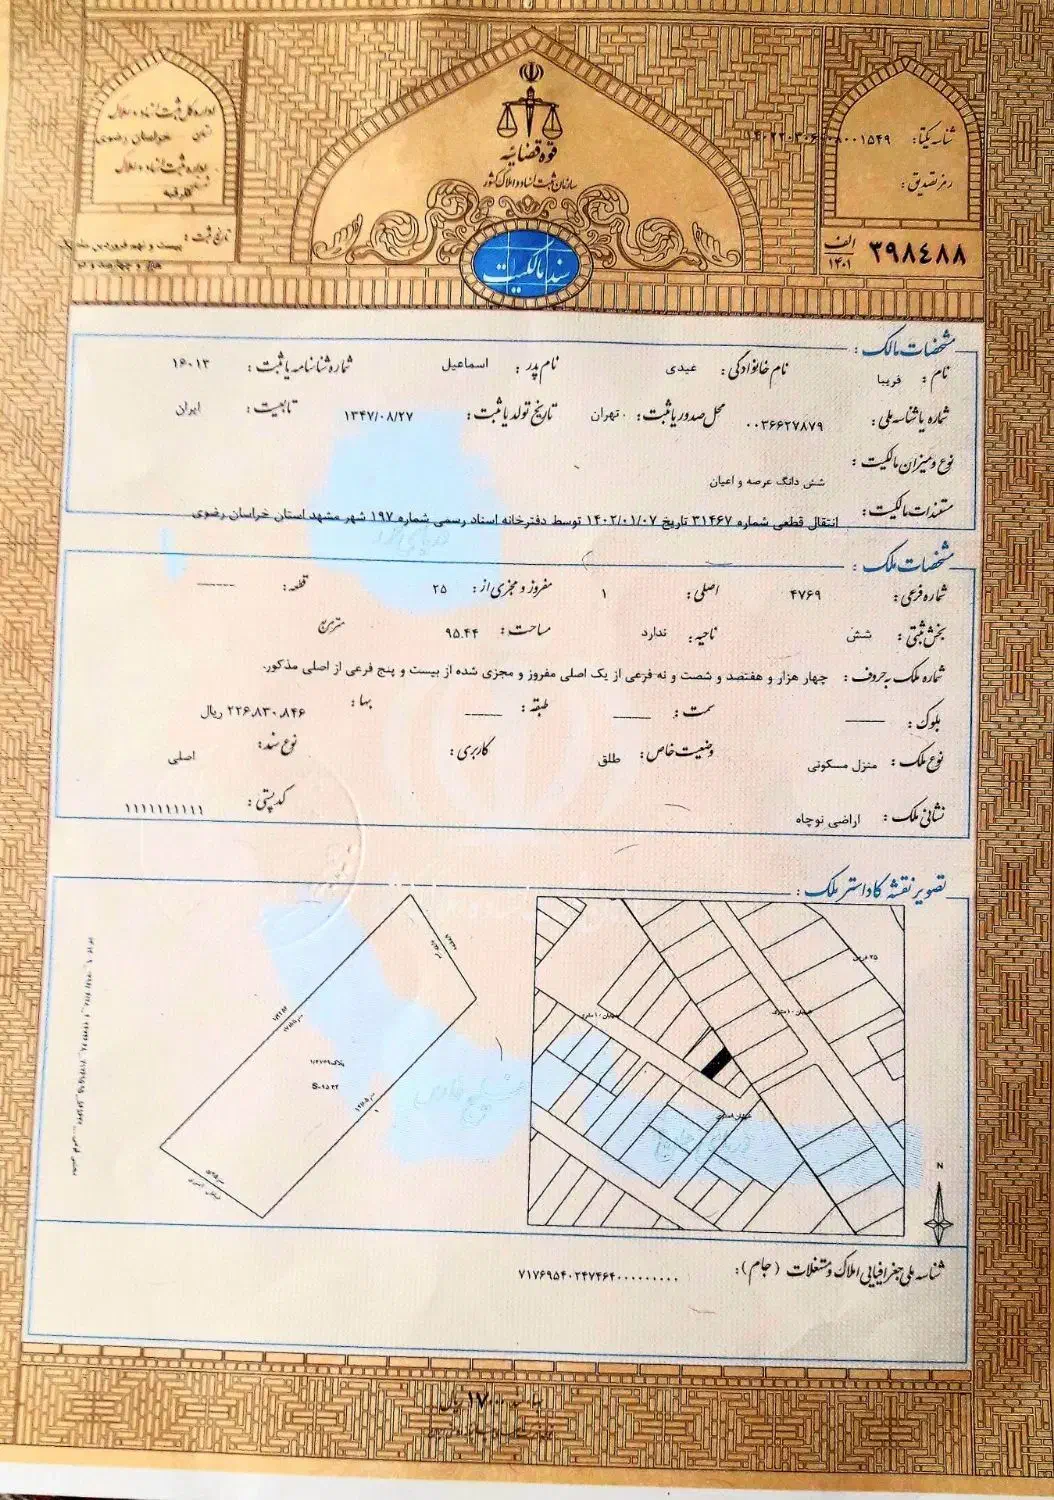 قوه قضائیه
سازمان ثبت اسناد و املاک کشور
سند مالکیت
اداره کل ثبت اسناد و املاک
استان خراسان رضوی
شناسه یکتا:
رمز تصدیق:
تاریخ ثبت:
الف
۱۴۰۱
۳۹۸۴۸۸
مشخصات مالک:
نام: فریبا نام خانوادگی: عیدی نام پدر: اسماعیل شماره شناسنامه یا ثبت: ۱۶۰۱۳
شماره یا شناسه ملی: ۰۰۳۶۶۲۷۸۷۹ محل صدور یا ثبت: تهران تاریخ تولد یا ثبت: ۱۳۴۷/۰۸/۲۷ تابعیت: ایران
نوع و میزان مالکیت:
شش دانگ عرصه و اعیان
مستندات مالکیت: انتقال قطعی شماره ۳۱۴۶۷ تاریخ ۱۴۰۲/۰۱/۰۷ توسط دفترخانه اسناد رسمی شماره ۱۹۷ شهر مشهد استان خراسان رضوی
مشخصات ملک:
شماره فرعی: ۴۷۶۹ اصلی: ۱ مفروز و مجزی از: ۲۵ قطعه: ------
بخش ثبتی: شش ناحیه: ندارد مساحت: ۹۵.۴۴ مترمربع
شماره ملک به حروف: چهار هزار و هفتصد و شصت و نه فرعی از یک اصلی مفروز و مجزی شده از بیست و پنج فرعی از اصلی مذکور.
بلوک: ------ سمت: ------ طبقه: ------ بها: ۲۲۶،۸۳۰،۸۴۶ ریال
نوع ملک: منزل مسکونی وضعیت خاص: طلق کاربری: نوع سند: اصلی
نشانی ملک: اراضی نوچاه کد پستی: ۱۱۱۱۱۱۱۱۱۱
تصویر نقشه کاداستر ملک:
N
شناسه ملی جغرافیایی املاک و مستغلات (جام): ۷۱۷۶۹۵۴۰۲۴۷۴۶۴۰۰۰۰۰۰۰۰۰